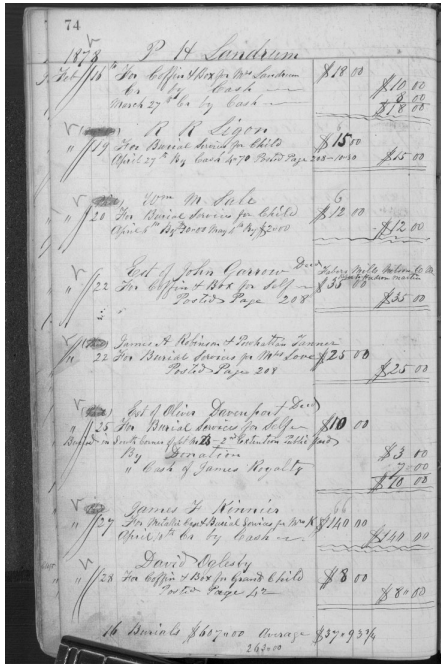 74
1878 P H Landrum
Feb 16th For Coffin & Box for Mrs Landrum $18 00
Cr by Cash $10 00
March 27th Cr by Cash 8 00
$18 00
R R Ligon
" 19 For Burial Services for Child $15 00
April 27th By Cash 4.70 Posted Page 208 - 10.30 $15 00
Wm M. Sale
" 20 For Burial Services for Child $12 00
April 6th By 10.00 May By $2.00 $12 00
Est of John Garrow Decd
" 22 For Coffin & Box for Self $35 00
Posted Page 208 $35 00
James A Robinson & Powhatten Tanner
" 22 For Burial Services for Mrs Love $25 00
Posted Page 208 $25 00
Est of Oliver Davenport Decd
" 25 For Burial Services for Self $10 00
Buried in South Corner of Lot No 2nd Extention Public yard
By Donation $3 00
" Cash of James Royalty 7 00
$10 00
James F Kinnier
" 27 For Metalic Case & Burial Services for Mrs K $140 00
April by Cash $140 00
David Oglesby
" 28 For Coffin & Box for Grand Child $8 00
Posted Page 42 $8 00
16 Burials $607.00 Average $37.93 3/4
263.00